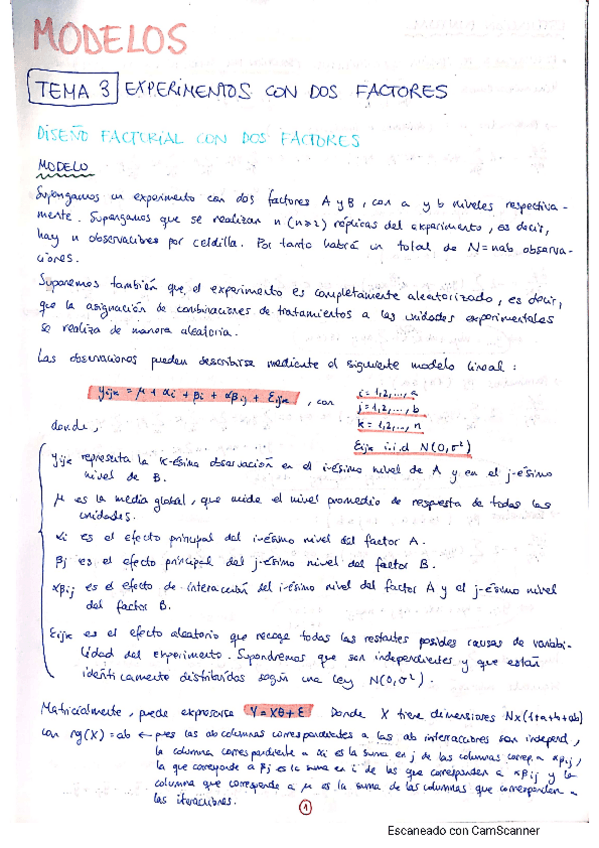 MODELOS
TEMA 3 EXPERIMENTOS CON DOS FACTORES
DISEÑO FACTORIAL CON DOS FACTORES
MODELO
Supongamos un experimento con dos factores A y B, con a y b niveles respectiva-
mente. Supongamos que se realizan n (n≥2) réplicas del experimento, es decir,
hay n observaciones por celdilla. Por tanto habrá un total de N=nab observa-
ciones.
Suponemos también que el experimento es completamente aleatorizado, es decir,
que la asignación de combinaciones de tratamientos a las unidades experimentales
se realiza de manera aleatoria.
Las observaciones pueden describirse mediante el siguiente modelo lineal:
yijk = μ + αi + βj + αβij + Eijk , con i=1,2,...,a
j=1,2,...,b
k=1,2,...,n
Eijk i.i.d N(0,σ²)
donde,
yijk representa la k-ésima observación en el i-ésimo nivel de A y en el j-ésimo
nivel de B.
μ es la media global, que mide el nivel promedio de respuesta de todas las
unidades.
αi es el efecto principal del i-ésimo nivel del factor A.
βj es el efecto principal del j-ésimo nivel del factor B.
αβij es el efecto de interacción del i-ésimo nivel del factor A y el j-ésimo nivel
del factor B.
Eijk es el efecto aleatorio que recoge todas las restantes posibles causas de variabi-
lidad del experimento. Supondremos que son independientes y que están
idénticamente distribuidos según una ley N(0,σ²).
Matricialmente, puede expresarse Y=Xθ+E Donde X tiene dimensiones Nx(1+a+b+ab)
con rg(X)=ab ← pues las ab columnas correspondientes a las ab interacciones son independ,
la columna correspondiente a αi es la suma en j de las columnas corresp a αβij,
la que corresponde a βj es la suma en i de las que corresponden a αβij y la
columna que corresponde a μ es la suma de las columnas que corresponden a
las iteraciones.
1
Escaneado con CamScanner